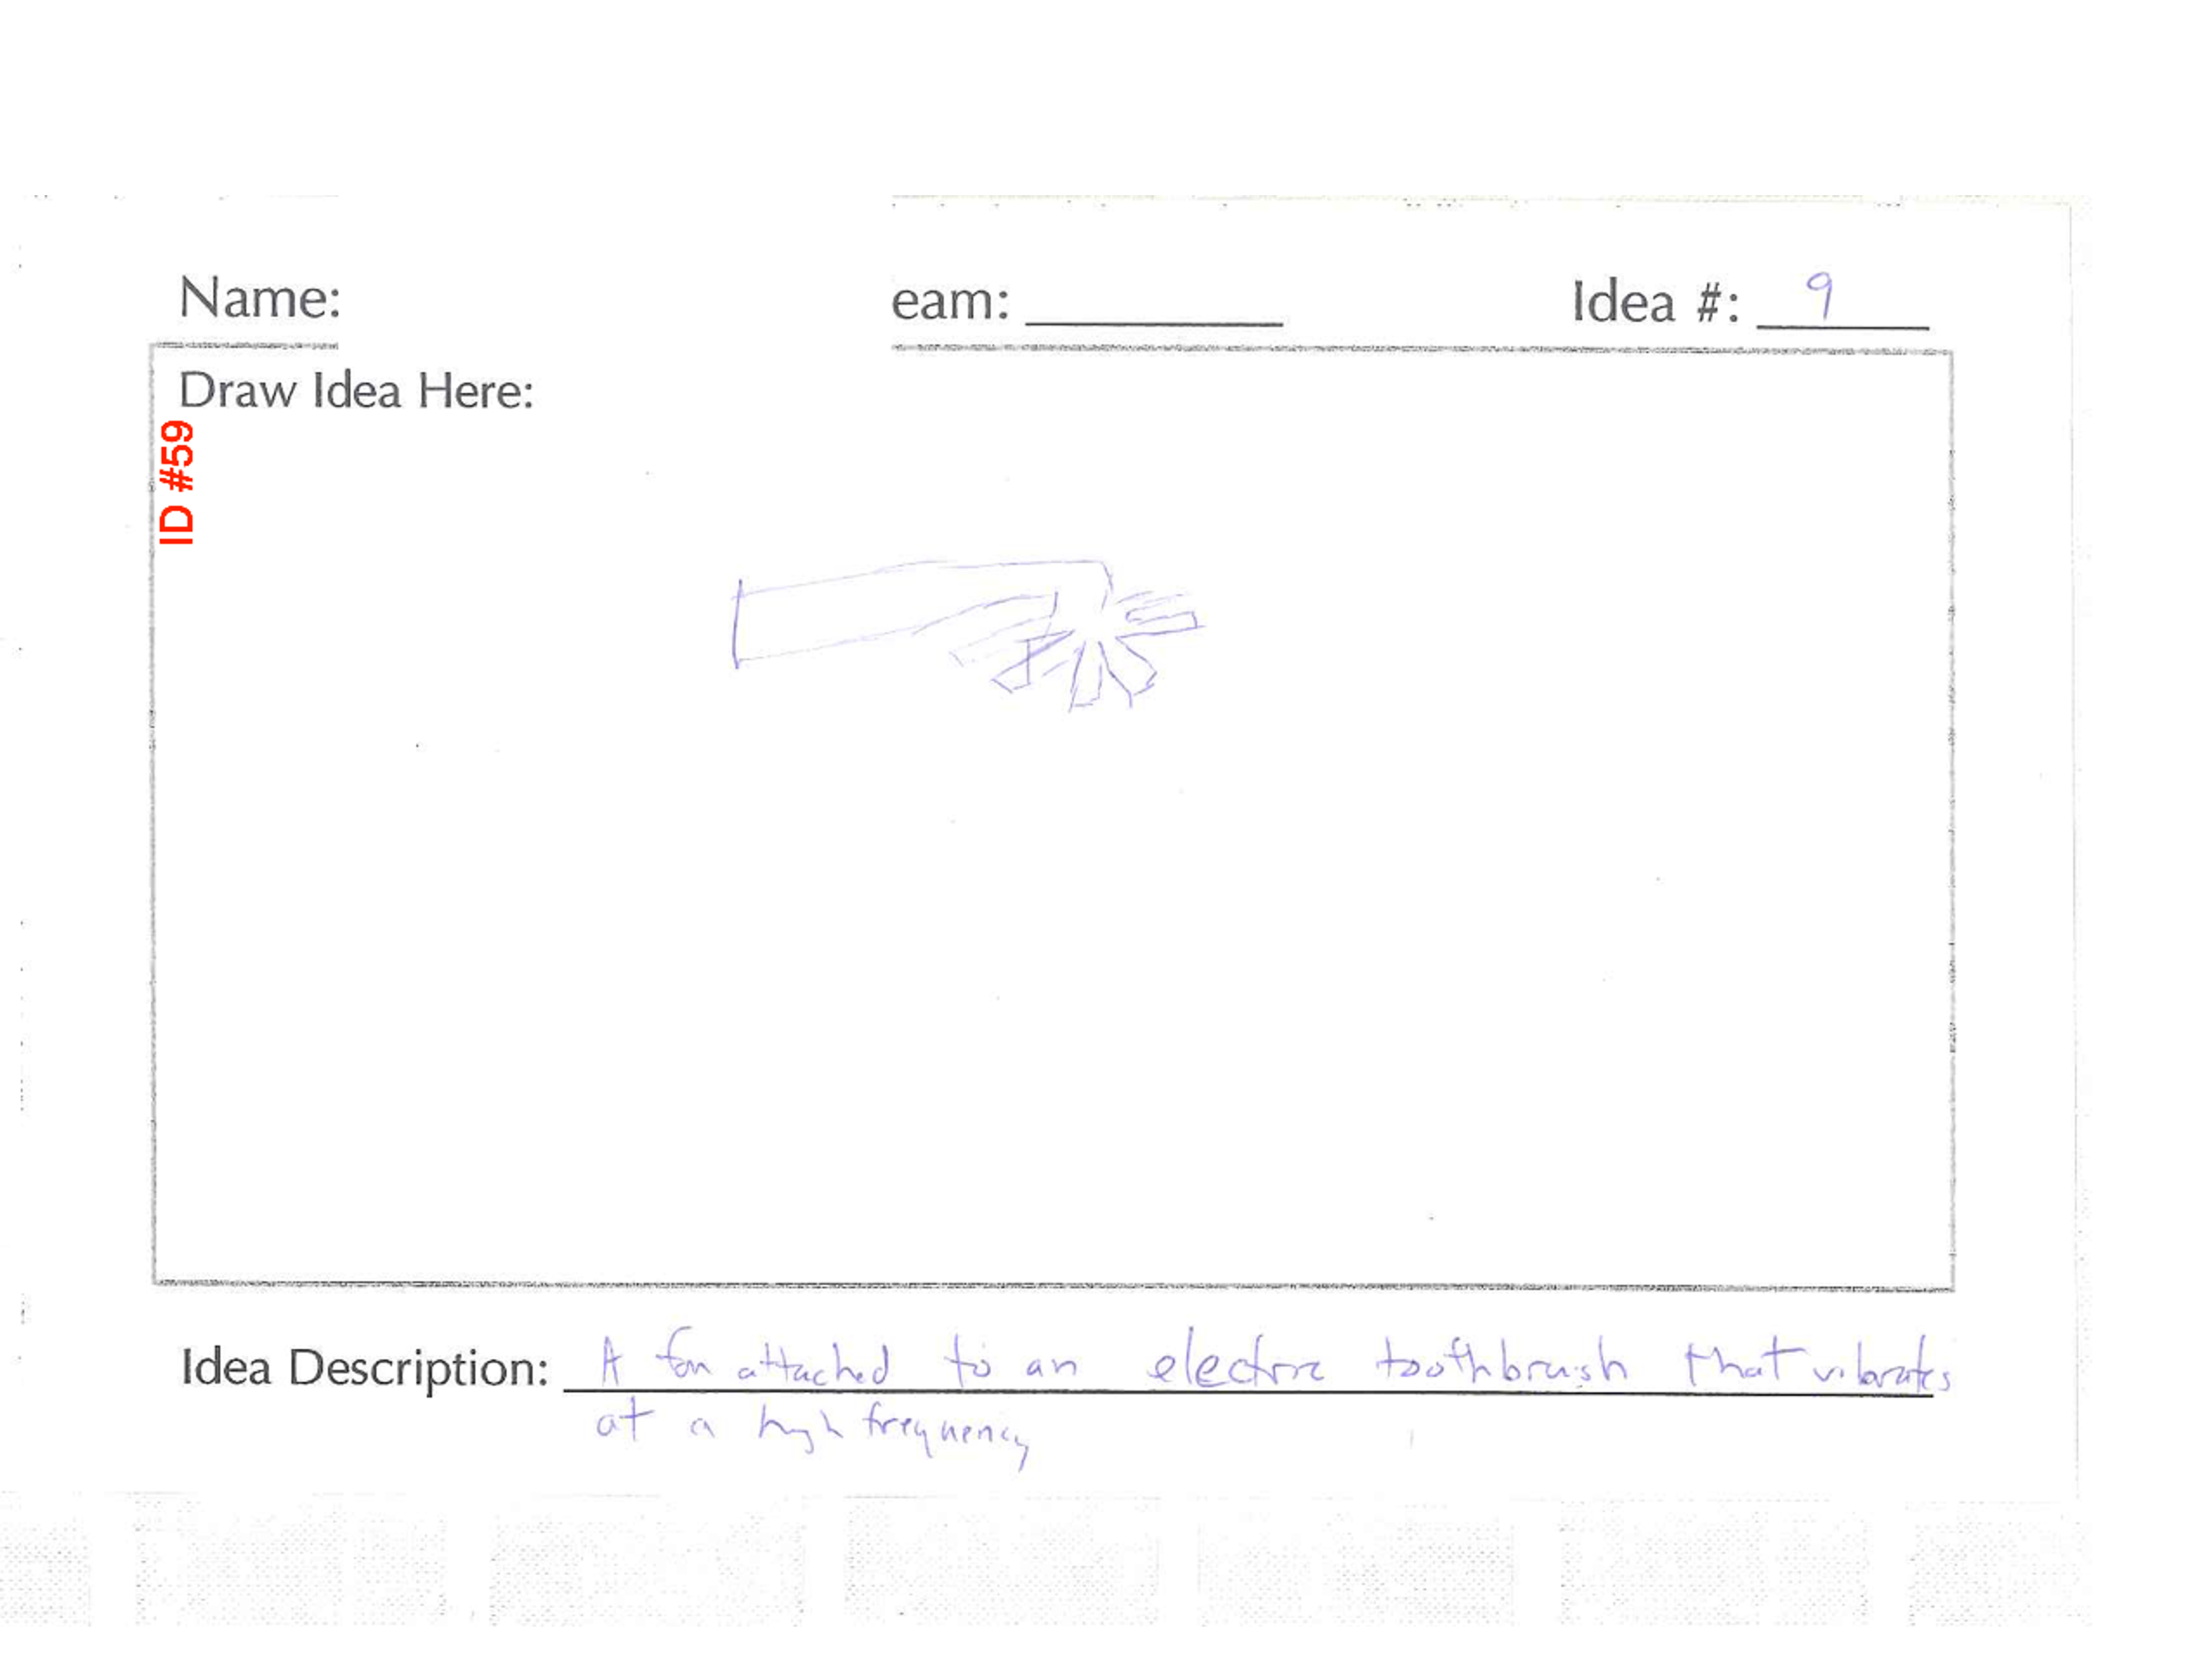 Name:
eam:
Idea #: 9
Draw Idea Here:
ID #59
Idea Description: A fan attached to an electric toothbrush that vibrates
at a high frequency